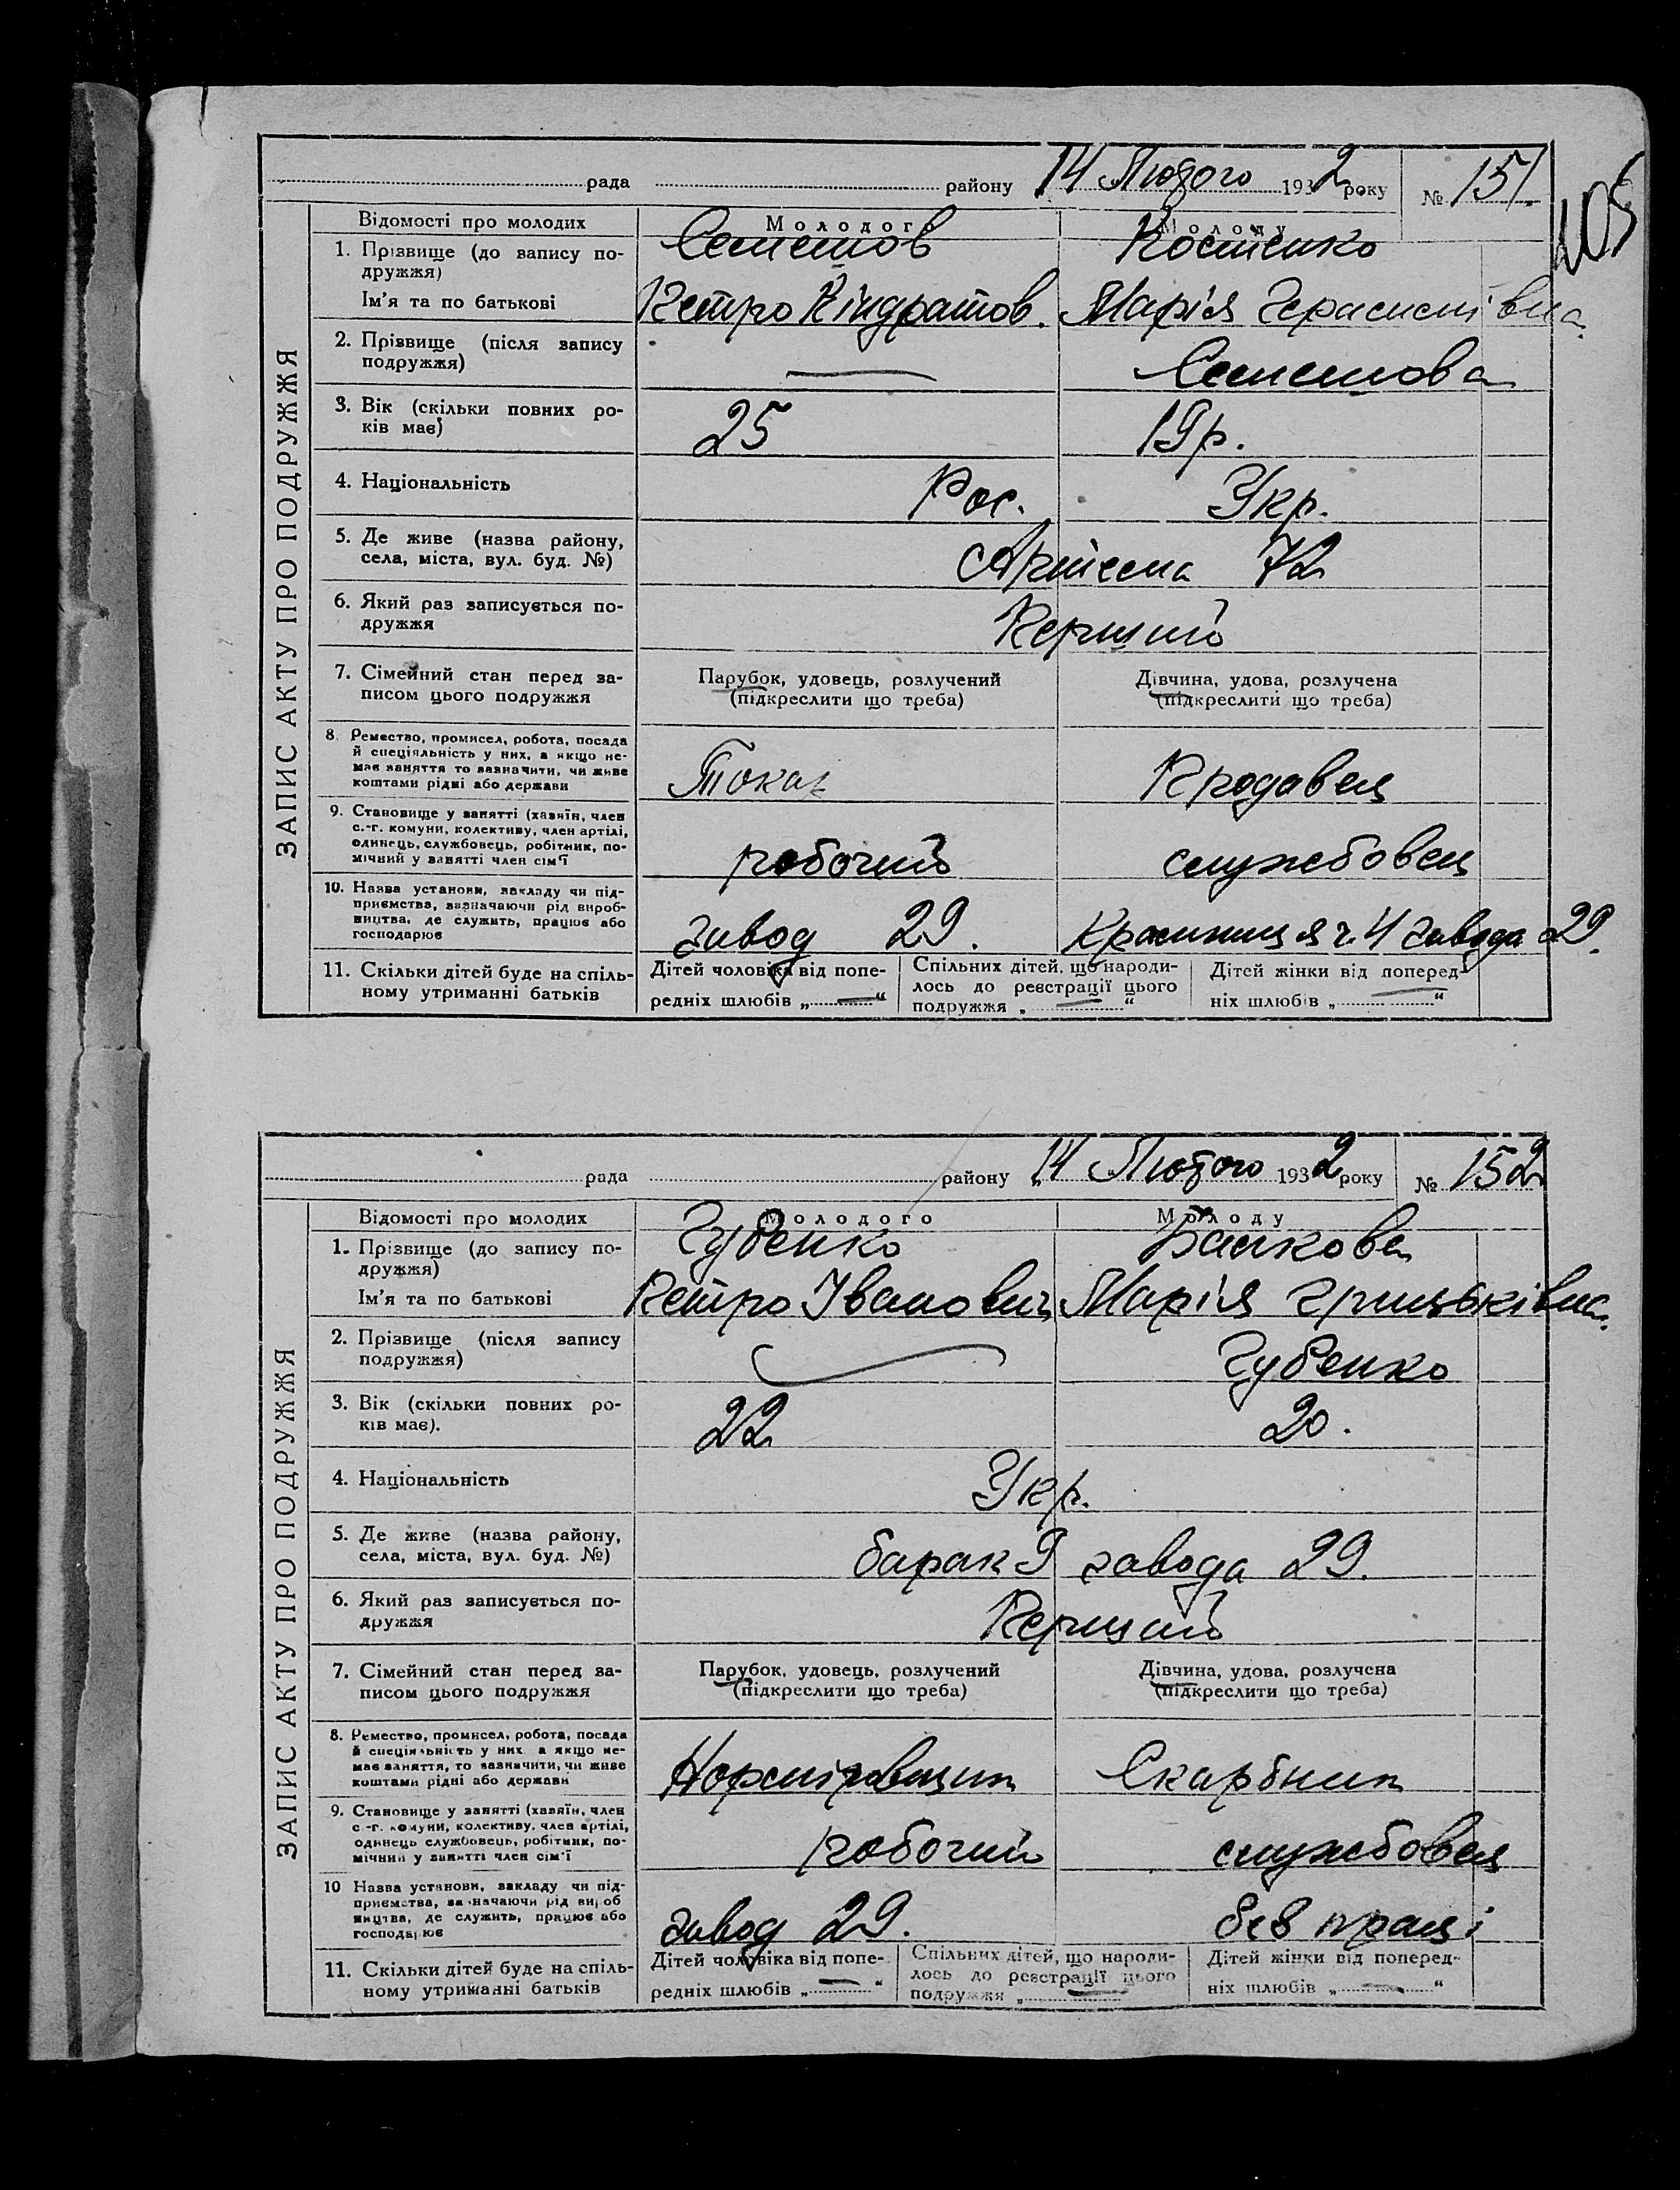 рада району 14 Лютого 1932 року № 151.
105
ЗАПИС АКТУ ПРО ПОДРУЖЖЯ
Відомості про молодих Молодого Молоду
1. Прізвище (до запису по-
дружжя) Костенко
Ім'я та по батькові Петро Кіндратов. Марія Герасимівна.
2. Прізвище (після запису
подружжя) —
3. Вік (скільки повних ро-
ків має) 25 19 р.
4. Національність Рос. Укр.
5. Де живе (назва району,
села, міста, вул. буд. №) Артема 72
6. Який раз записується по-
дружжя Перший
7. Сімейний стан перед за- Парубок, удовець, розлучений Дівчина, удова, розлучена
писом цього подружжя (підкреслити що треба) (підкреслити що треба)
8. Ремество, промисел, робота, посада
й спеціяльність у них, а якщо не-
має заняття то зазначити, чи живе
коштами рідні або держави Токар Продавец
9. Становище у занятті (хазяїн, член
с.-г. комуни, колективу, член артілі,
одинець, службовець, робітник, по-
мічний у занятті член сім'ї робочий службовец
10. Назва установи, закладу чи під-
приємства, зазначаючи рід вироб-
ництва, де служить, працює або
господарює завод 29. Крамниця ч. 4 завода 29.
11. Скільки дітей буде на спіль- Дітей чоловіка від попе- Спільних дітей, що народи- Дітей жінки від поперед-
ному утриманні батьків редніх шлюбів „ — “ лось до реєстрації цього ніх шлюбів „ — “
подружжя „ — “
рада району 14 Лютого 1932 року № 152
ЗАПИС АКТУ ПРО ПОДРУЖЖЯ
Відомості про молодих Молодого Молоду
1. Прізвище (до запису по-
дружжя) Губенко
Ім'я та по батькові Петро Іванович Марія Грицьківна.
2. Прізвище (після запису
подружжя) Губенко
3. Вік (скільки повних ро-
ків має). 22 20.
4. Національність Укр.
5. Де живе (назва району,
села, міста, вул. буд. №) барак 9 завода 29.
6. Який раз записується по-
дружжя Перший
7. Сімейний стан перед за- Парубок, удовець, розлучений Дівчина, удова, розлучена
писом цього подружжя (підкреслити що треба) (підкреслити що треба)
8. Ремество, промисел, робота, посада
й спеціяльність у них а якщо не-
має заняття, то зазначити, чи живе
коштами рідні або держави Норміровщик Скарбник
9. Становище у занятті (хазяїн, член
с.-г. комуни, колективу, член артілі,
одинець службовець, робітник, по-
мічний у занятті член сім'ї робочий службовец
10 Назва установи, закладу чи під-
приємства, зазначаючи рід вироб
ництва, де служить, працює або
господарює завод 29. без праці
11. Скільки дітей буде на спіль- Дітей чоловіка від попе- Спільних дітей, що народи- Дітей жінки від поперед-
ному утриманні батьків редніх шлюбів „ — “ лось до реєстрації цього ніх шлюбів „ — “
подружжя „ —